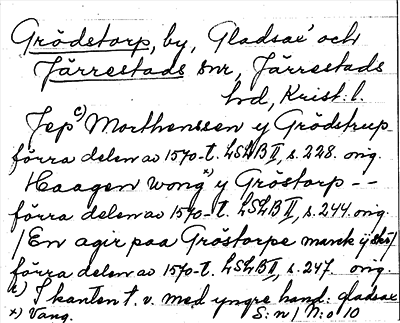 Grödstorp, by, Gladsax' och
Järrestads snr, Järrestads
hrd, Krist. l.
Jep c) Morthenssen y Grödstrup
förra delen av 1570-t. LSLB II, s. 228. orig.
Haagen Wong x) y Gröstorp --
förra delen av 1570-t. LSLB II, s. 244. orig.
/En agir paa Gröstorpe marck ij sk/
förra delen av 1570-t. LSLB II, s. 247. orig.
c) I kanten t. v. med yngre hand: gladsax
x) Vang. S: n / N: o 10